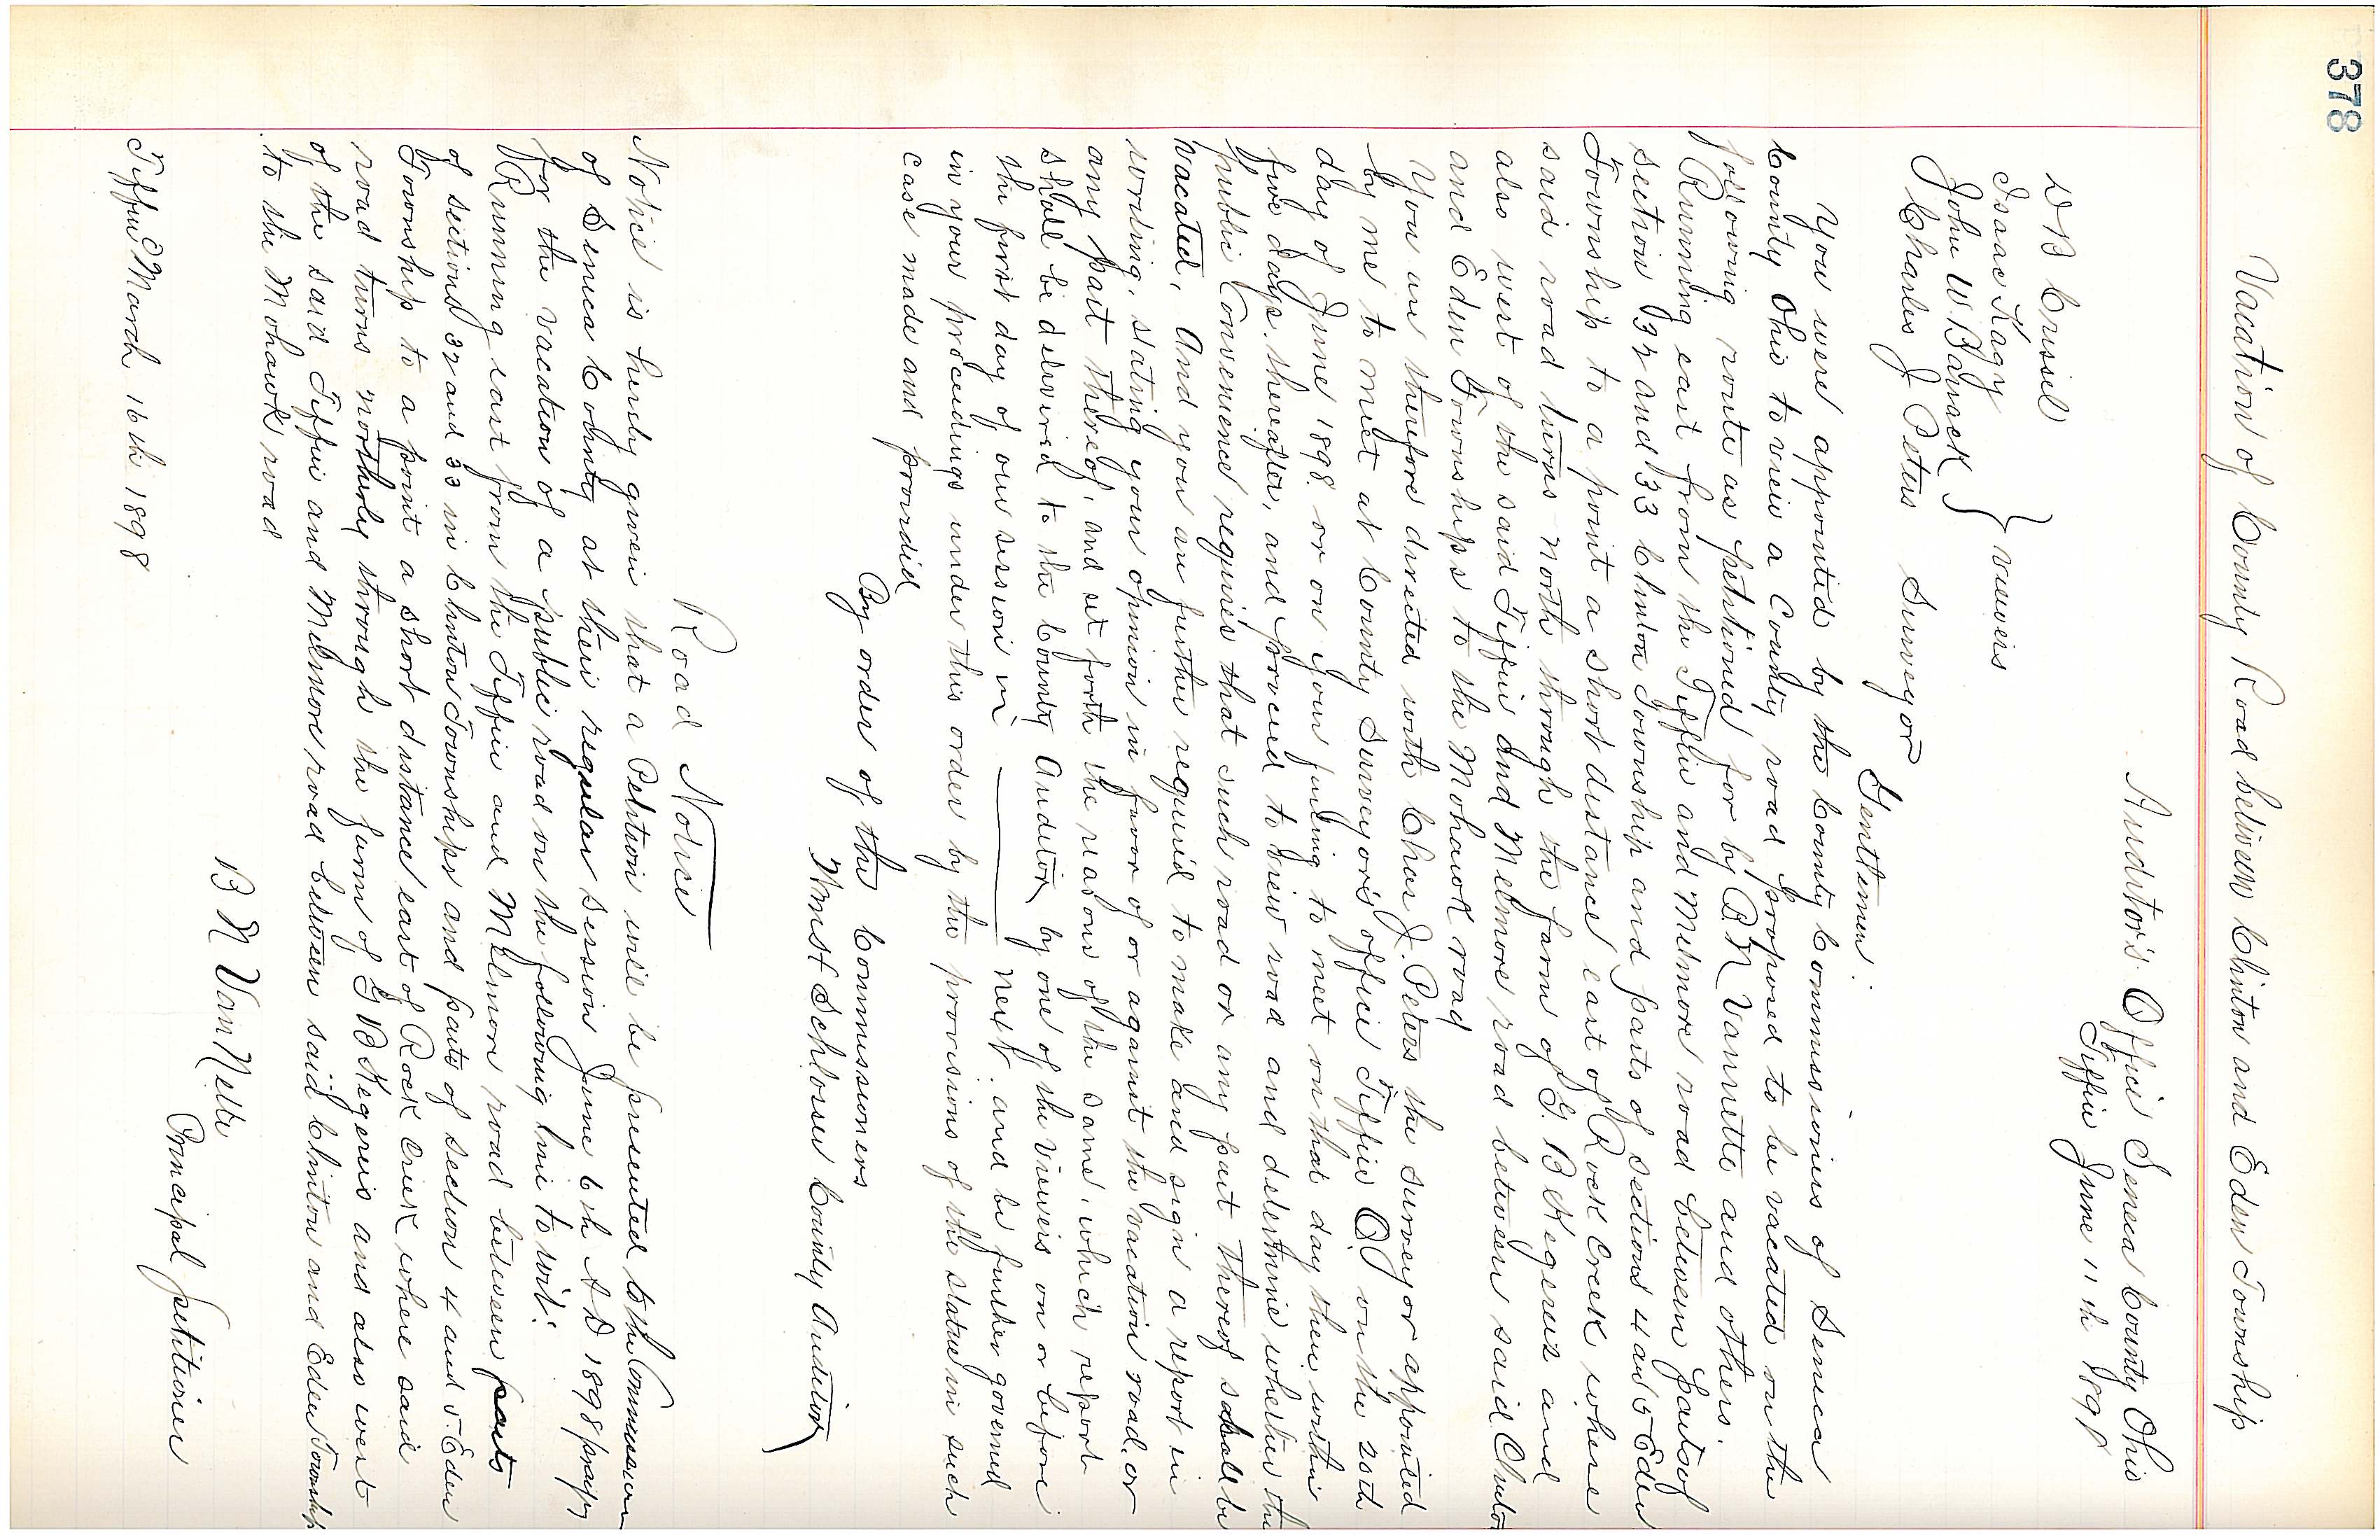 378
Vacation of County Road between Clinton and Eden Township
Auditor's Office Seneca County Ohio
Tiffin June 11th 1898
D B Crissel
Isaac Kagy
John W Barrack } viewers
Charles J Peters Surveyor
Gentlemen.
You were appointed by the County Commissioners of Seneca
County Ohio to view a County road proposed to be vacated on the
following route as petitioned for by B. N. Vannette and others.
Running east from the Tiffin and Melmore road between parts of
section 32 and 33 Clinton Township and parts of sections 4 and 5 Eden
Township to a point a short distance east of Rock Creek where
said road turns north through the farm of G. B Kegereis and
also west of the said Tiffin and Melmore road between said Clinton
and Eden Townships to the Mohawk road
You are therefore directed with Chas J. Peters the surveyor appointed
by me to meet at County Surveyor's office Tiffin O. on the 25th
day of June 1898. or on your failing to meet on that day then within
five days thereafter, and proceed to view road and determine whether the
public Convenience requires that such road or any part thereof shall be
vacated, And you are further required to make and sign a report in
writing, stating your opinion in favor of or against the vacation road, or
any part thereof, and set forth the reasons of the same, which report
shall be delivered to the County Auditor by one of the viewers on or before
the first day of our session in ——— next. and be further governed
in your proceedings under this order by the provisions of the statue in such
case made and provided
By order of the Commissioners
Wmst Schlosser County Auditor
Road Notice
Notice is hereby given that a Petition will be presented to the Commissioners
of Seneca County at their regular session June 6th A D 1898 praying
for the vacation of a public road on the following line to wit:
Running east from the Tiffin and Melmore road between parts
of sections 32 and 33 in Clinton Townships and parts of section 4 and 5 Eden
Township to a point a short distance east of Rock Creek where said
road turns northerly through the farm of G B Kegereis and also west
of the said Tiffin and Melmore road between said Clinton and Eden Townships
to the Mohawk road
B N Van Nette
Principal petitioner
Tiffin O March 16th 1898